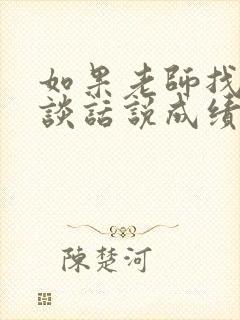 如果老師找
談話説成績
陳楚河